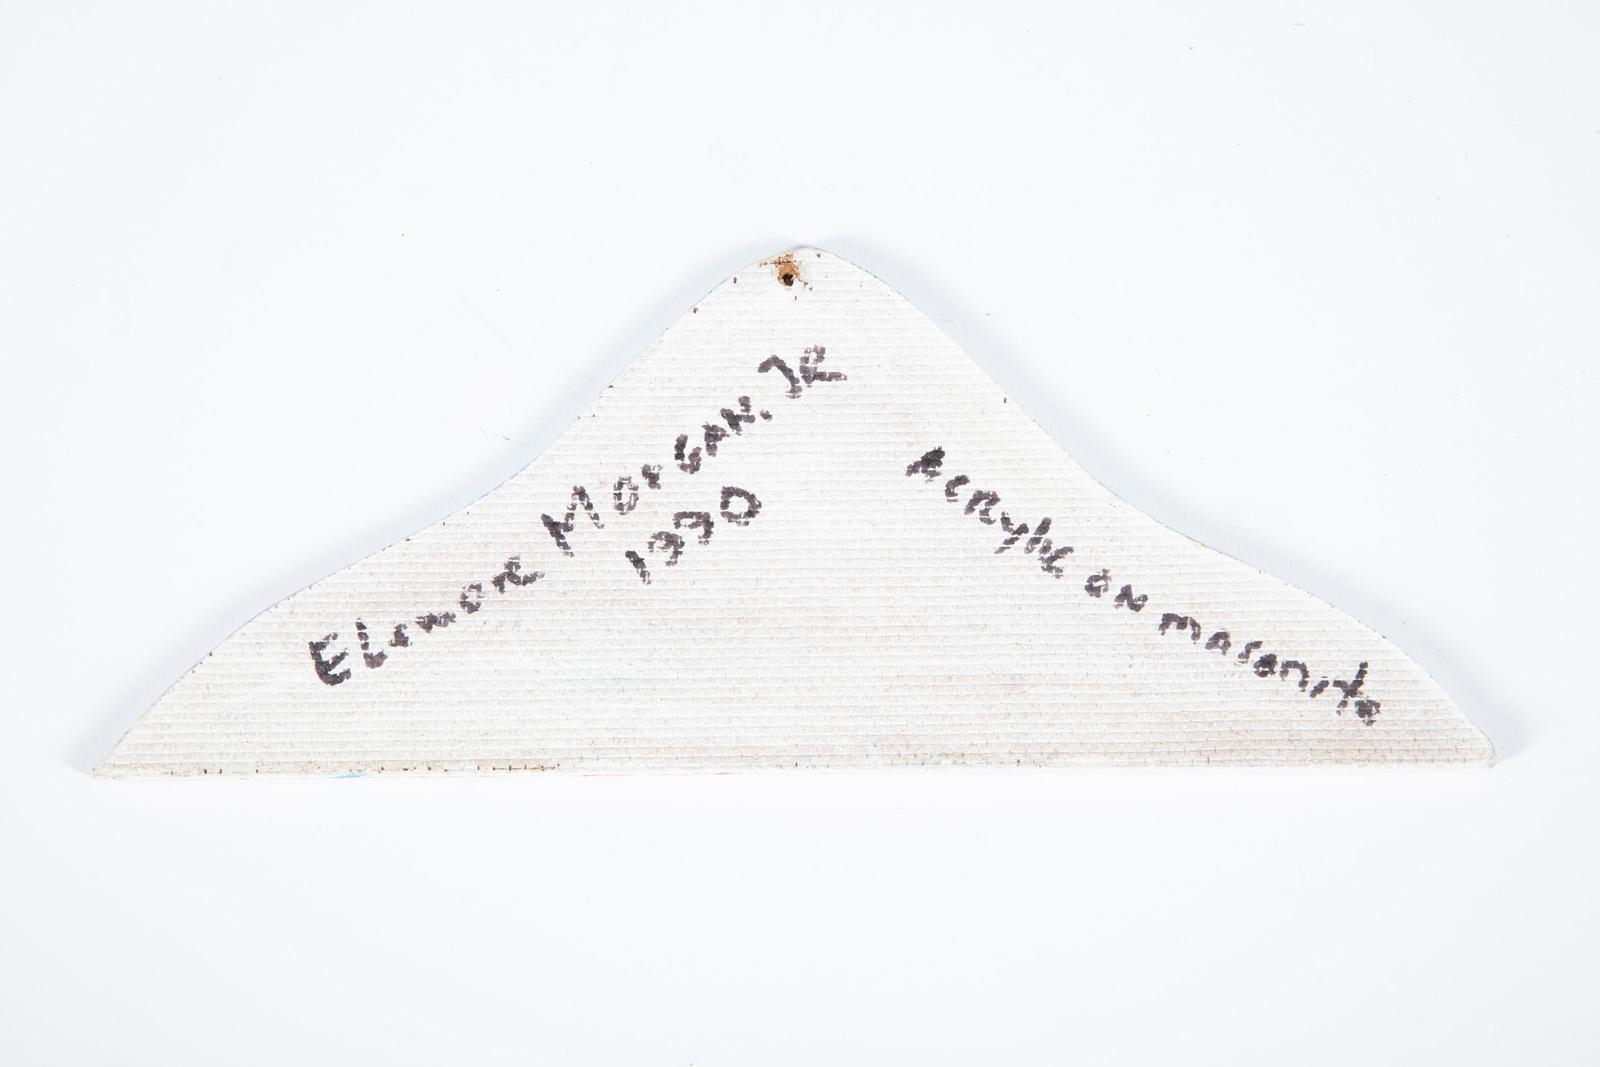 Elemore Morgan. JR
1990
Acrylic on masonite